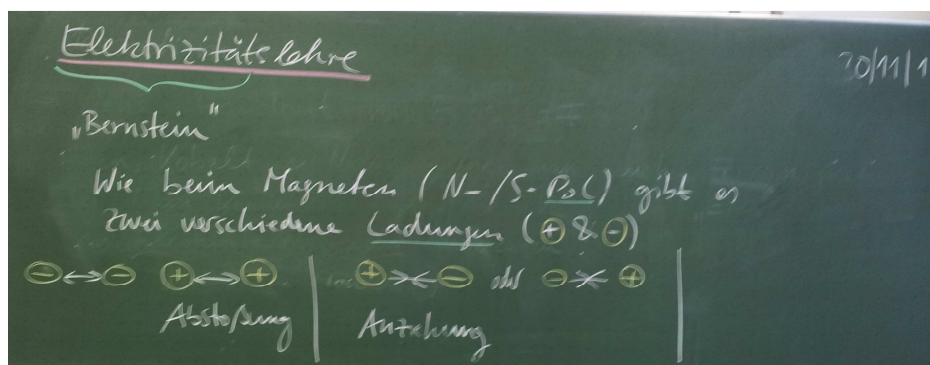 Elektrizitätslehre
30/11/1
„Bernstein"
Wie beim Magneten (N-/S-Pol) gibt es
zwei verschiedene Ladungen (+ & -)
- ↔ - + ↔ + + →← - oder - →← +
Abstoßung Anziehung